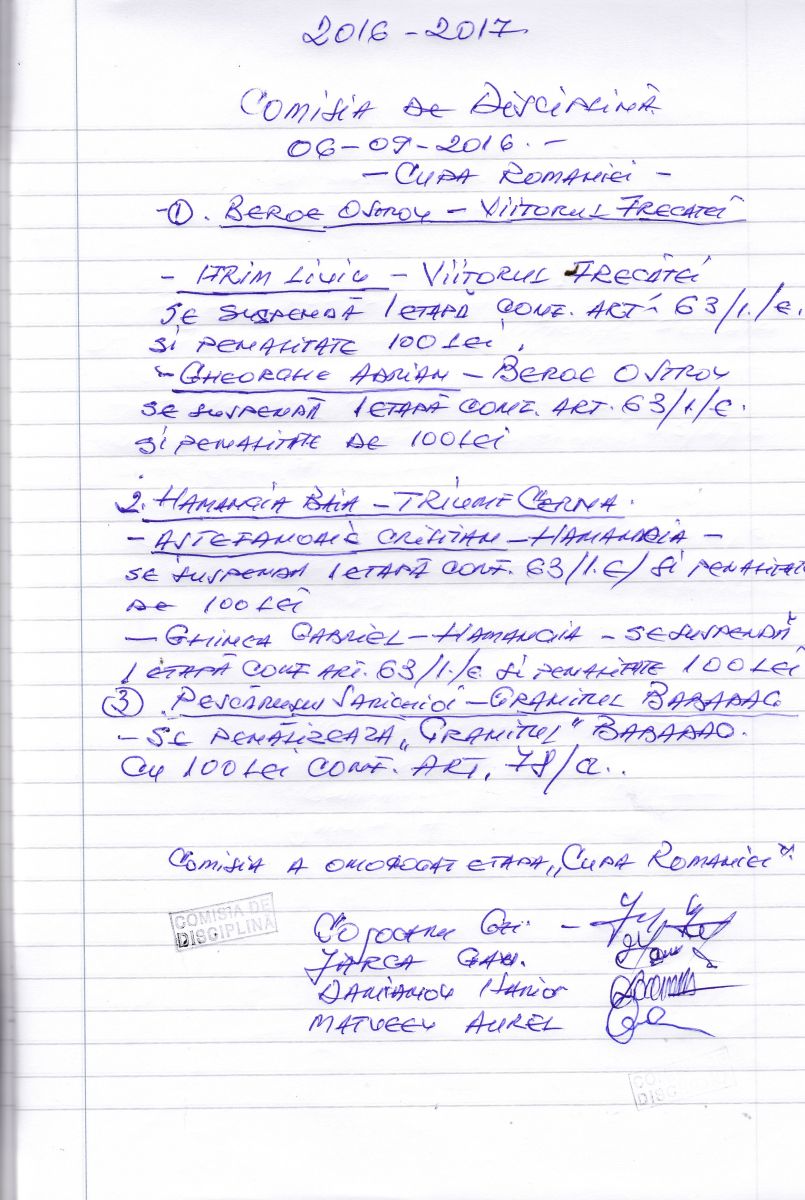 2016-2017
COMISIA DE DISCIPLINĂ
06-09-2016.-
- CUPA ROMANIEI -
-①. BEROE OSTROV - VIITORUL FRECATEI
- ITRIM LIVIU - VIITORUL FRECĂTEI
SE SUSPENDĂ 1 ETAPĂ CONF. ART. 63/1./E.
SI PENALITATE 100 LEI.
- GHEORGHE ADRIAN - BEROE OSTROV
SE SUSPENDĂ 1 ETAPĂ CONF. ART. 63/1/E.
SI PENALITATE DE 100 LEI
2. HAMANGIA BAIA - TRIUMF CERNA.
- ASTEFANOAIE CRISTIAN - HAMANGIA -
SE SUSPENDĂ 1 ETAPĂ CONF. 63/1.E/ SI PENALITATE
DE 100 LEI
- GHINEA GABRIEL - HAMANGIA - SE SUSPENDĂ
1 ETAPĂ CONF ART. 63/1./E SI PENALITATE 100 LEI
③. PESCĂRUSUL SARICHIOI - GRANITUL BABADAG.
- SE PENALIZEAZĂ „GRANITUL" BABADAG.
CU 100 LEI CONF. ART. 78/a..
COMISIA A OMOLOGAT ETAPA „CUPA ROMANIEI".
COMISIA DE
DISCIPLINĂ
COJOCARU -
JARCA
DAMIANOV
MATVEEV AUREL